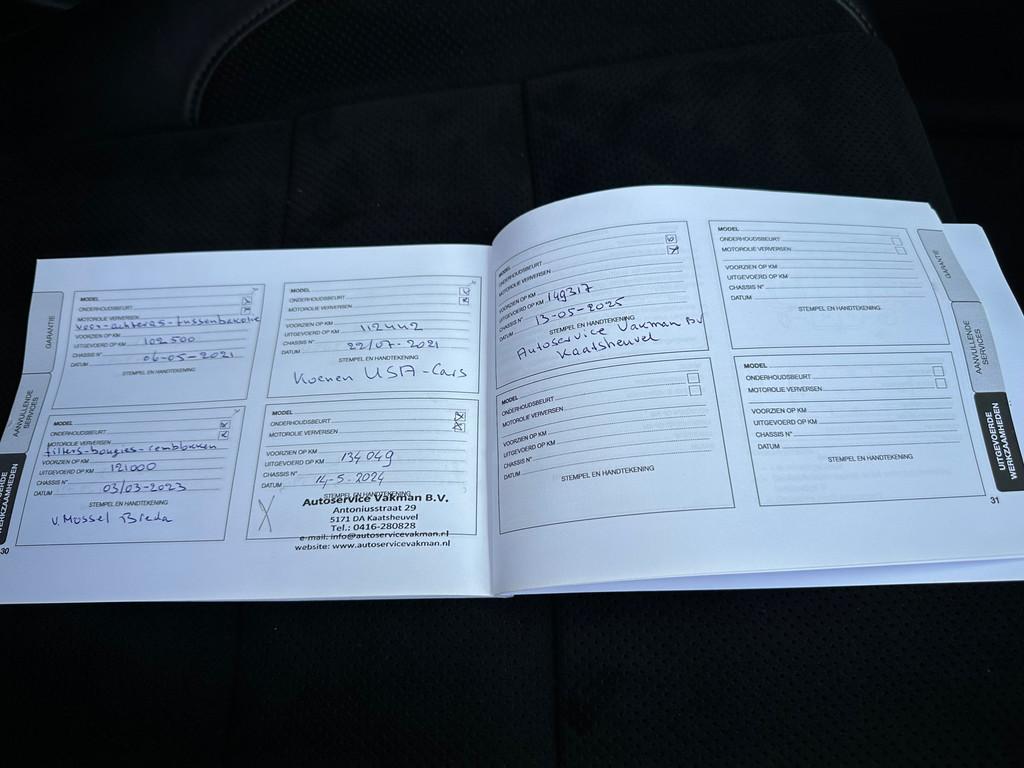 GARANTIE
AANVULLENDE
SERVICES
WERKZAAMHEDEN
30
MODEL
ONDERHOUDSBEURT
MOTOROLIE VERVERSEN
voor-achteras-tussenbakolie
VOORZIEN OP KM
UITGEVOERD OP KM 102500
CHASSIS N°
DATUM 06-05-2021
STEMPEL EN HANDTEKENING
MODEL
ONDERHOUDSBEURT
MOTOROLIE VERVERSEN
VOORZIEN OP KM
UITGEVOERD OP KM 112442
CHASSIS N°
DATUM 22/07-2021
STEMPEL EN HANDTEKENING
Koenen USA-Cars
MODEL
ONDERHOUDSBEURT
MOTOROLIE VERVERSEN
filters-bougies-remblokken
VOORZIEN OP KM
UITGEVOERD OP KM 121000
CHASSIS N°
DATUM 03/03-2023
STEMPEL EN HANDTEKENING
v. Mossel Breda
MODEL
ONDERHOUDSBEURT
MOTOROLIE VERVERSEN
VOORZIEN OP KM
UITGEVOERD OP KM 134049
CHASSIS N°
DATUM 14-5-2024
STEMPEL EN HANDTEKENING
Autoservice Vakman B.V.
Antoniusstraat 29
5171 DA Kaatsheuvel
Tel.: 0416-280828
e-mail: info@autoservicevakman.nl
website: www.autoservicevakman.nl
MODEL
ONDERHOUDSBEURT
MOTOROLIE VERVERSEN
VOORZIEN OP KM
UITGEVOERD OP KM 149317
CHASSIS N°
DATUM 13-05-2025
STEMPEL EN HANDTEKENING
Autoservice Vakman BV
Kaatsheuvel
MODEL
ONDERHOUDSBEURT
MOTOROLIE VERVERSEN
VOORZIEN OP KM
UITGEVOERD OP KM
CHASSIS N°
DATUM
STEMPEL EN HANDTEKENING
MODEL
ONDERHOUDSBEURT
MOTOROLIE VERVERSEN
VOORZIEN OP KM
UITGEVOERD OP KM
CHASSIS N°
DATUM
STEMPEL EN HANDTEKENING
MODEL
ONDERHOUDSBEURT
MOTOROLIE VERVERSEN
VOORZIEN OP KM
UITGEVOERD OP KM
CHASSIS N°
DATUM
STEMPEL EN HANDTEKENING
GARANTIE
AANVULLENDE
SERVICES
UITGEVOERDE
WERKZAAMHEDEN
31